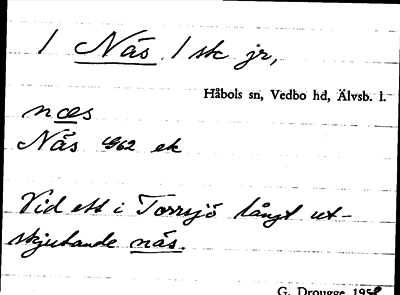 1 Näs 1 sk jr,
Håbols sn, Vedbo hd, Älvsb. l.
næs
Näs 1962 ek
Vid ett i Torrsjö långt ut-
skjutande näs.
G. Drougge 1958